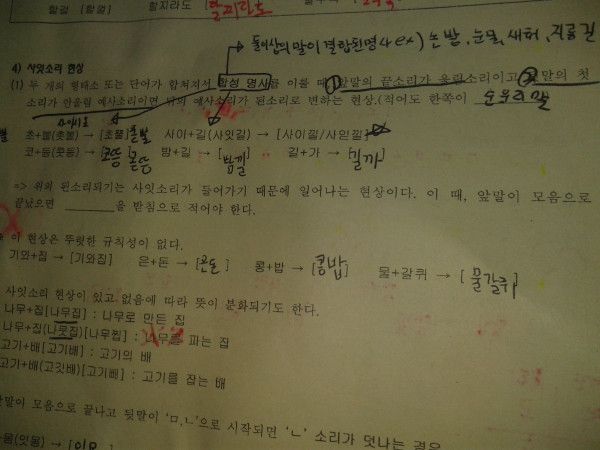 할걸 [할껄] 할지라도 [할찌라도
→ 둘이상의 말이 결합된 명사 ex) 논밥, 눈물, 새해, 지름길
4) 사잇소리 현상
(1) 두 개의 형태소 또는 단어가 합쳐져서 합성 명사를 이룰 때, ① 앞말의 끝소리가 울림소리이고 ② 뒷말의 첫
소리가 안울림 예사소리이면 뒤의 예사소리가 된소리로 변하는 현상.(적어도 한쪽이 순우리말
초+불(촛불) → [초뿔] 사이+길(사잇길) → [사이낄/사읻낄]
코+등(콧등) → [코뜽 밤+길 → [밤낄] 길+가 → [길까]
=> 위의 된소리되기는 사잇소리가 들어가기 때문에 일어나는 현상이다. 이 때, 앞말이 모음으로
끝났으면 을 받침으로 적어야 한다.
이 현상은 뚜렷한 규칙성이 없다.
기와+집 → [기와집] 은+돈 → [은돈] 콩+밥 → [콩밥] 물+갈퀴 → [물갈퀴]
사잇소리 현상이 있고 없음에 따라 뜻이 분화되기도 한다.
나무+집[나무집] : 나무로 만든 집
나무+집(나뭇집)[나무찝] : 나무를 파는 집
고기+배[고기배] : 고기의 배
고기+배(고깃배)[고기빼] : 고기를 잡는 배
앞말이 모음으로 끝나고 뒷말이 'ㅁ,ㄴ'으로 시작되면 'ㄴ' 소리가 덧나는 경우
몸(잇몸) → [인몸